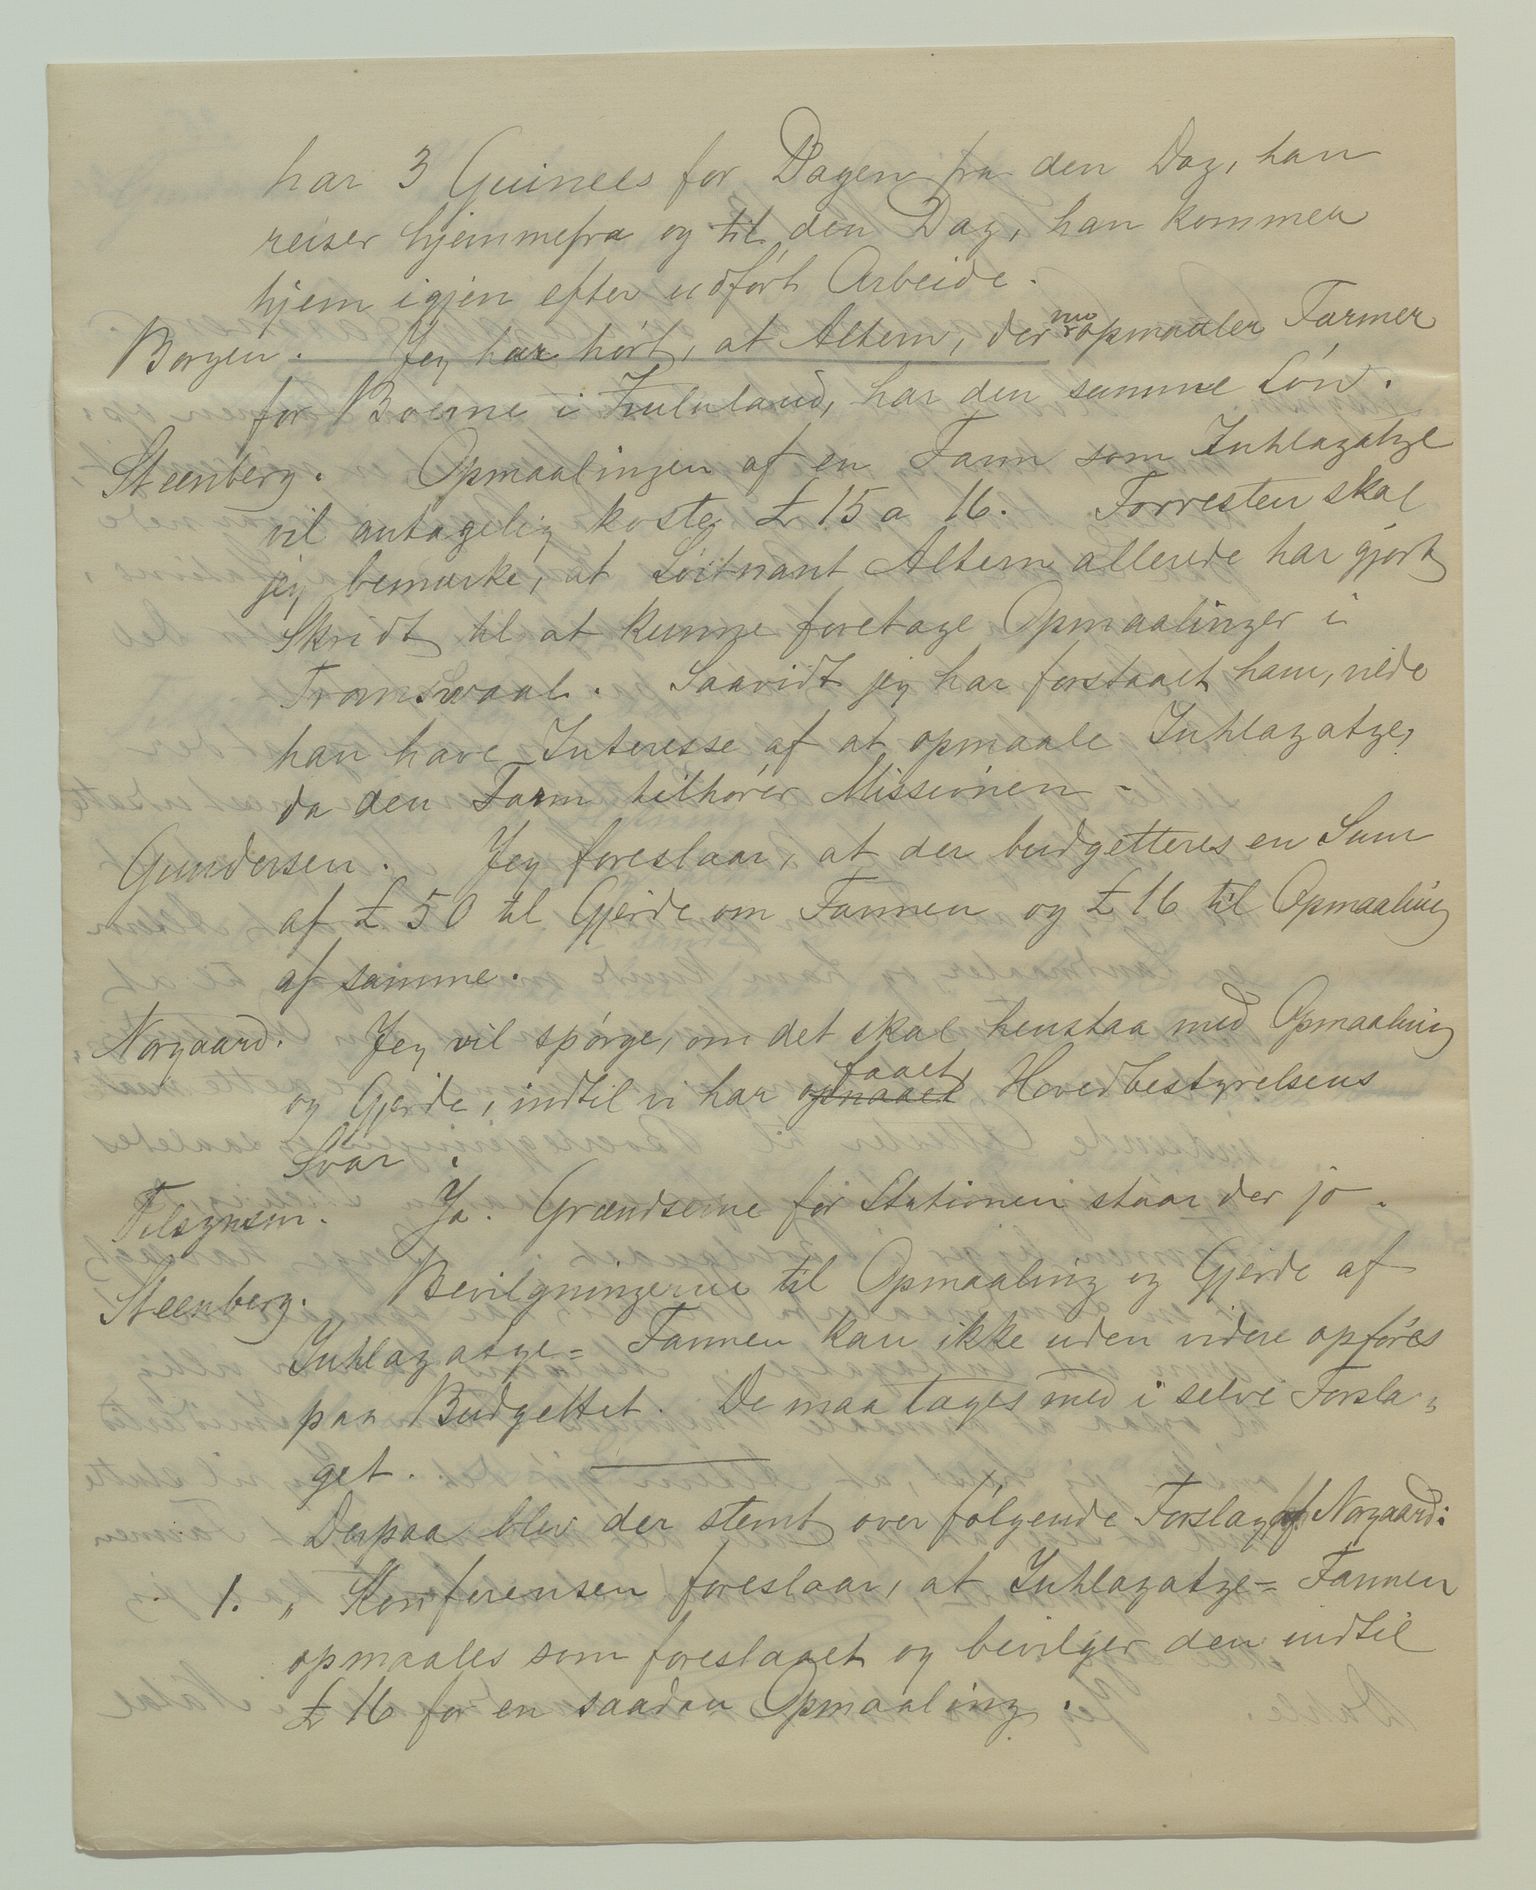 har 3 Guinees for Dagen fra den Dag, han
reiser hjemmefra og til den Dag, han kommer
hjem igjen efter udført Arbeide.
Borgen. Jeg har hørt, at Altern, der nu opmaaler Farmer
for Boerne i Zululand, har den samme Løn.
Steenberg. Opmaalingen af en Farm som Inhlazatze
vil antagelig koste £ 15 a 16. Forresten skal
jeg bemærke, at Løitnant Altern allerede har gjort
Skridt til at kunne foretage Opmaalinger i
Transwaal. Saavidt jeg har forstaaet ham, vilde
han have Interesse af at opmaale Inhlazatze,
da den Farm tilhører Missionen.
Gundersen. Jeg foreslaar, at der budgetteres en Sum
af £ 50 til Gjerde om Farmen og £ 16 til Opmaaling
af samme.
Norgaard. Jeg vil spørge, om det skal henstaa med Opmaaling
og Gjerde, indtil vi har opnaaet faaet Hovedbestyrelsens
Svar.
Tilsynsm. Ja. Grændserne for Stationen staar der jo.
Steenberg. Bevilgningerne til Opmaaling og Gjerde af
Inhlazatze= Farmen kan ikke uden videre opføres
paa Budgettet. De maa tages med i selve Forsla=
get.
Derpaa blev der stemt over følgende Forslag af Norgaard:
1. „ Konferensen foreslaar, at Inhlazatze= Farmen
opmaales som foreslaaet og bevilger den indtil
£ 16 for en saadan Opmaaling.